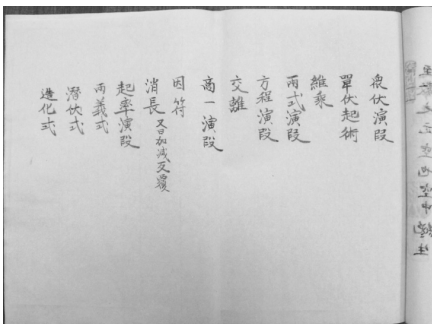 衆伏演段
單伏起術
維乗
両式演段
方程演段
交離
高一演段
因符
消長 又曰加減反覆
起率演段
両義式
潜伏式
造化式